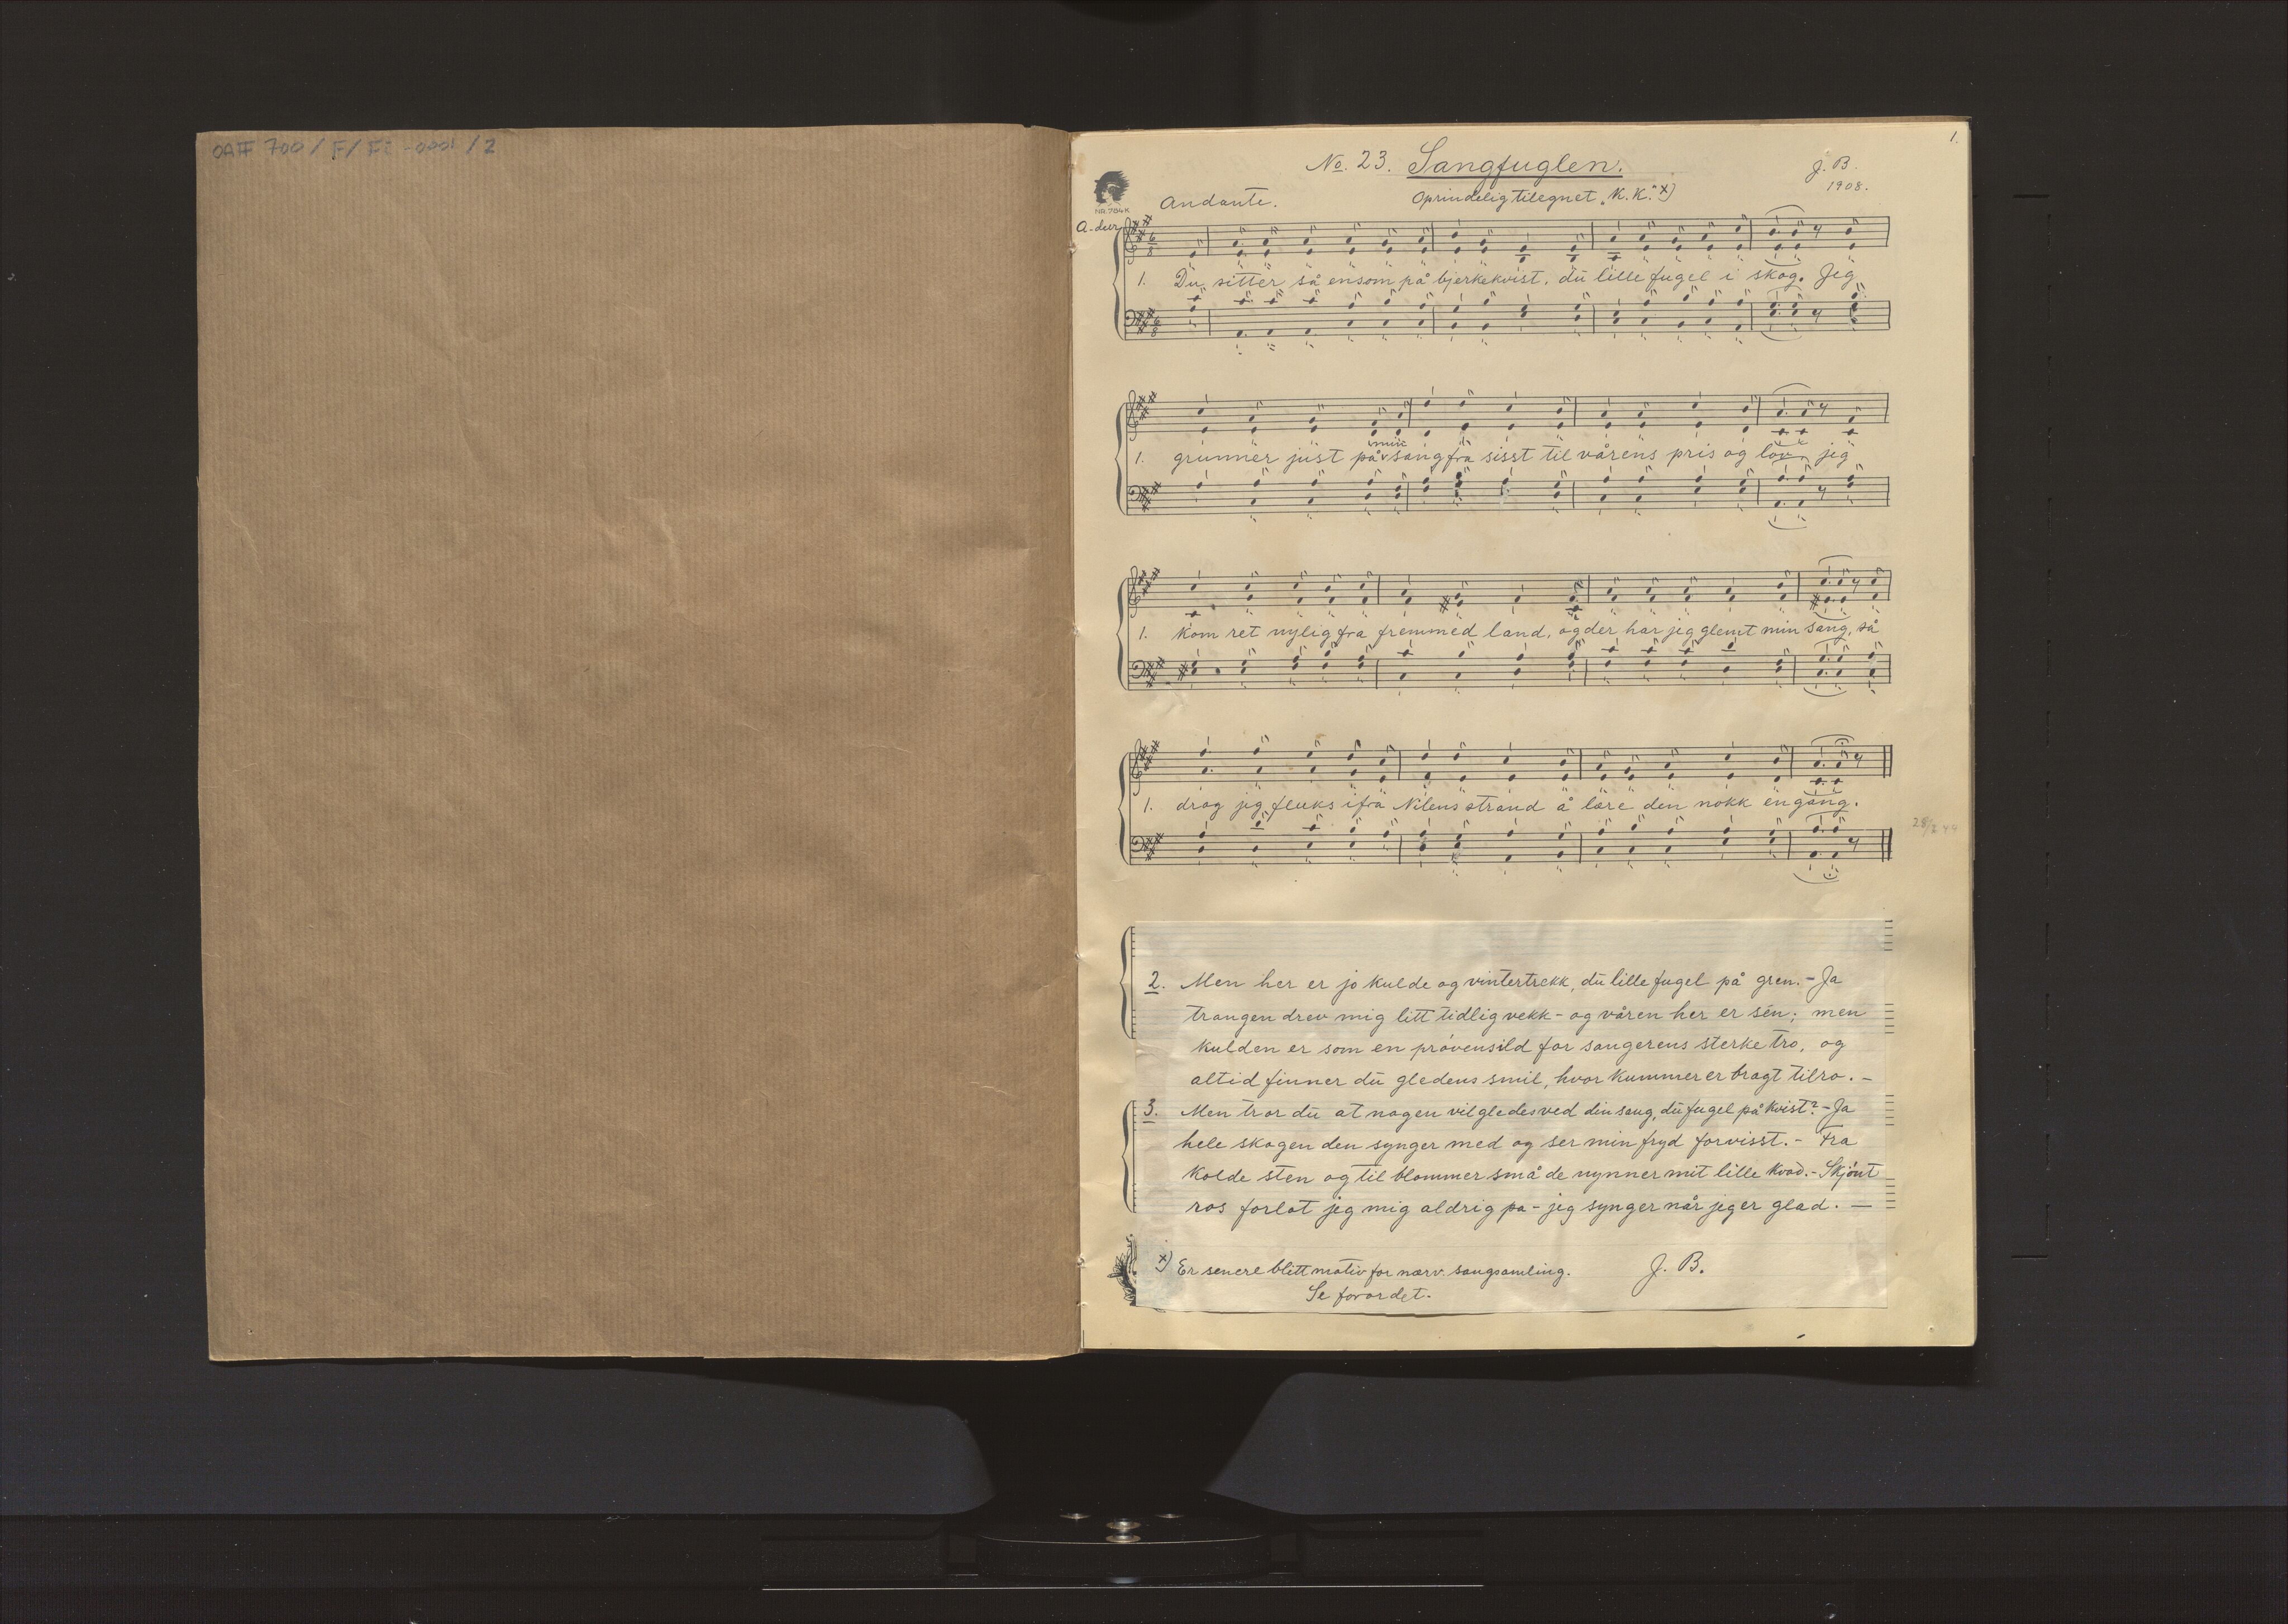 OAFF 700/F/Fi-0001/2
1.
No. 23. Sangfuglen.
J. B.
1908.
Andante.
Oprindelig tilegnet „K. K.“ x)
NR. 784 K
A-dur
1. Du sitter så ensom på bjerkekvist, du lille fugel i skog. Jeg
min
1. grunner just på v sang fra sisst til vårens pris og lov, jeg
1. kom ret nylig fra fremmed land, og der har jeg glemt min sang, så
1. drog jeg fluks ifra Nilens strand å lære den nokk engang.
2. Men her er jo kulde og vintertrekk, du lille fugel på gren. - Ja
trangen drev mig litt tidlig vekk - og våren her er sén; men
kulden er som en prövensild for sangerens sterke tro, og
altid finner du gledens smil, hvor kummer er bragt til ro. -
3. Men tror du at nogen vil gledes ved din sang, du fugel på kvist? - Ja
hele skogen den synger med og ser min fryd forvisst. - Fra
kolde sten og til blommer små de nynner mit lille kvad. - Skjönt
ros forlot jeg mig aldrig pa - jeg synger når jeg er glad. -
x) Er senere blitt motiv for nærv. sangsamling. J. B.
Se forordet.